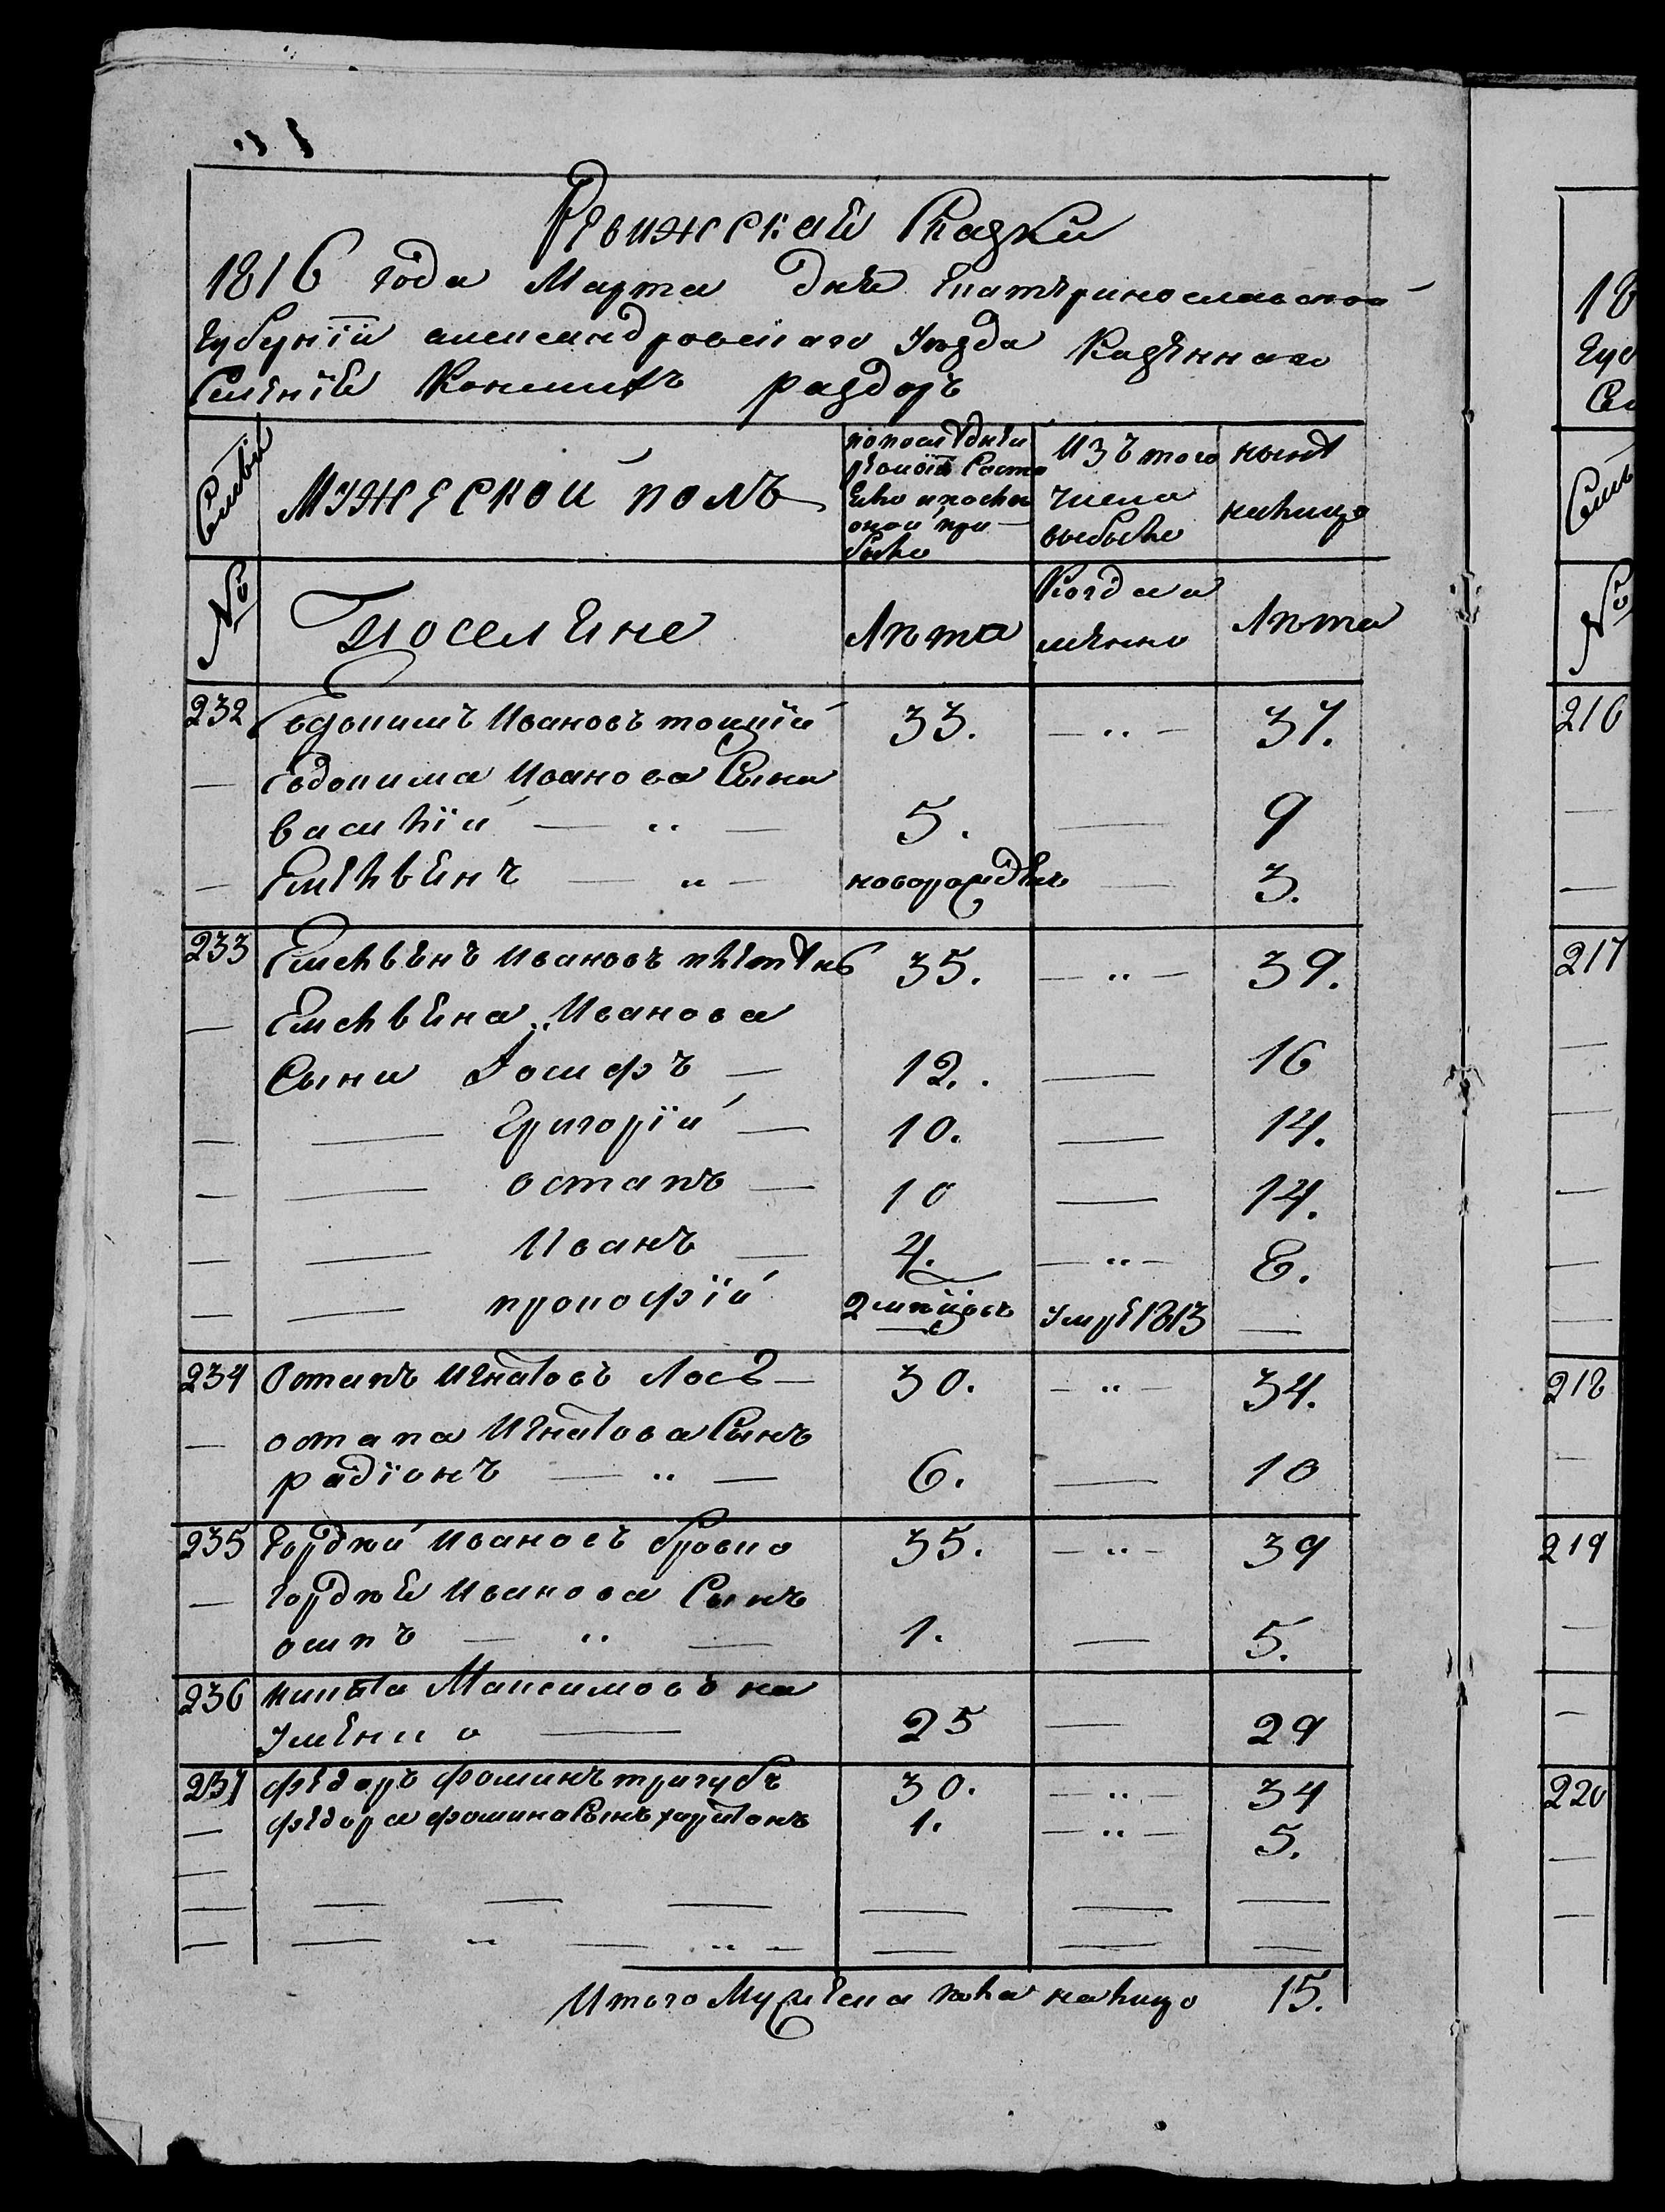 Ревижская Сказка
1816 года Марта дня Екатеринославской
Губернїи александровского Уезда Казенного
Селенїя Конских раздоръ
Семьи
мужеской полъ
по последней
ревизїи состо
яло и после
оной при
было
Изъ того
числа
выбыло
ныне
налицо
№
Поселяне
Лета
Когда и
менно
Лета
232 Евдокимъ Ивановъ 33. — „ — 37.
— Евдокима Иванова Сына
василїй — „ — 5. — 9
— Емельянъ — „ — новорожденъ — 3.
233 Емельянъ Ивановъ 35. — „ — 39.
— Емельяна Иванова
Сыны Іосифъ — 12. — 16
— — Григорїй — 10. — 14.
— — остапъ — 10 — 14.
— — Иванъ — 4. — „ — 8.
— — прокофїй 2 умре 1813 —
234 Остапъ Игнатовъ Лось — 30. — „ — 34.
— остапа Игнатова Сынъ
радїонъ — „ — 6. — 10
235 Гордей Ивановъ бровко 35. — „ — 39
— Гордея Иванова Сынъ
осипъ — „ — 1. — 5.
236 никита Максимовъ на
Уменко — 25 — 29
237 федоръ фоминъ тригубъ 30. — „ — 34
— федора фомина Сынъ харитонъ 1. — „ — 5.
Итого Мужеска пола налицо 15.
18
Гу
Се
Семь
№
216
217
218
219
220